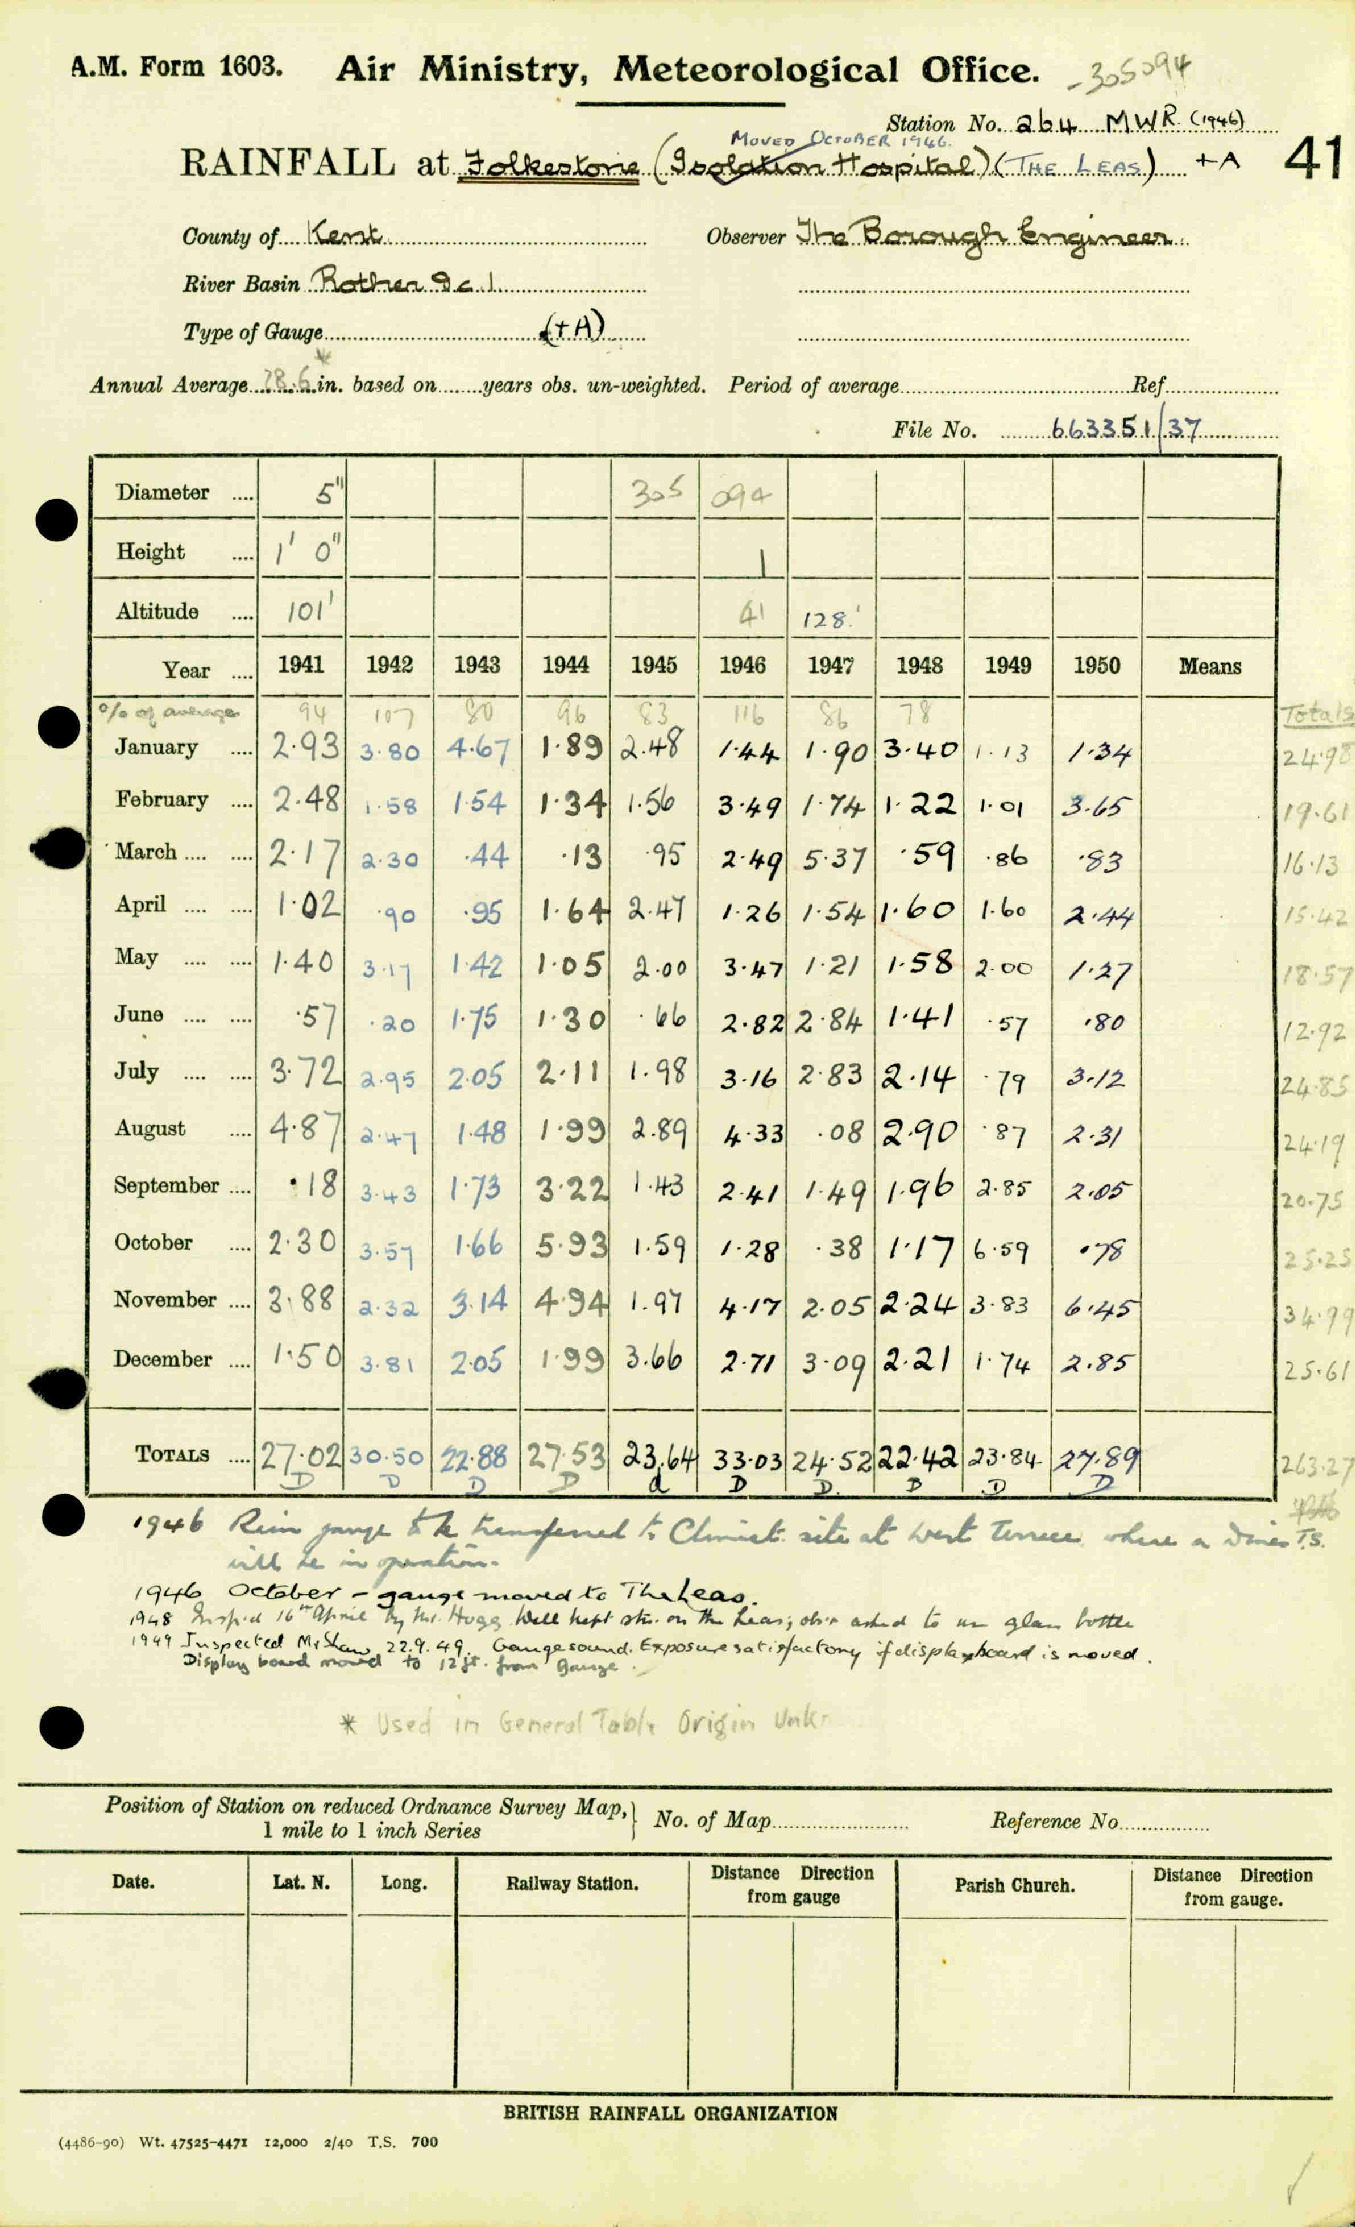 A.M. Form 1603. Air Ministry, Meteorological Office. 305094
Station No. 264 MWR (1946)
MOVED OCTOBER 1946.
RAINFALL at Folkestone (Isolation Hospital) (THE LEAS) +A 41
County of Kent Observer The Borough Engineer
River Basin Rother &c 1
Type of Gauge (+A)
Annual Average 28.6* in. based on years obs. un-weighted. Period of average Ref
File No. 663351/37
Diameter .... 5" 305 094
Height .... 1' 0" 1
Altitude .... 101' 41 128'
Year .... 1941 1942 1943 1944 1945 1946 1947 1948 1949 1950 Means
% of average 94 107 80 96 83 116 86 78 Totals
January .... 2.93 3.80 4.67 1.89 2.48 1.44 1.90 3.40 1.13 1.34 24.98
February .... 2.48 1.58 1.54 1.34 1.56 3.49 1.74 1.22 1.01 3.65 19.61
March .... .... 2.17 2.30 .44 .13 .95 2.49 5.37 .59 .86 .83 16.13
April .... .... 1.02 .90 .95 1.64 2.47 1.26 1.54 1.60 1.60 2.44 15.42
May .... .... 1.40 3.17 1.42 1.05 2.00 3.47 1.21 1.58 2.00 1.27 18.57
June .... .... .57 .20 1.75 1.30 .66 2.82 2.84 1.41 .57 .80 12.92
July .... .... 3.72 2.95 2.05 2.11 1.98 3.16 2.83 2.14 .79 3.12 24.85
August .... 4.87 2.47 1.48 1.99 2.89 4.33 .08 2.90 .87 2.31 24.19
September .... .18 3.43 1.73 3.22 1.43 2.41 1.49 1.96 2.85 2.05 20.75
October .... 2.30 3.57 1.66 5.93 1.59 1.28 .38 1.17 6.59 .78 25.25
November .... 3.88 2.32 3.14 4.94 1.97 4.17 2.05 2.24 3.83 6.45 34.99
December .... 1.50 3.81 2.05 1.99 3.66 2.71 3.09 2.21 1.74 2.85 25.61
TOTALS .... 27.02 30.50 22.88 27.53 23.64 33.03 24.52 22.42 23.84 27.89 263.27
D D D D d D D. D D. D
1946 Rain gauge to be transferred to Climat. site at West Terrace, where a Dines T.S.
will be in operation.
1946 October - gauge moved to The Leas.
1948 Insp'd 16th April by Mr. Hogg. Well kept stn. on the Leas; obsr asked to use glass bottle
1949 Inspected Mr Shaw 22.9.49. Gauge sound. Exposure satisfactory if display board is moved.
Display board moved to 12 ft. from gauge.
* Used in General Table Origin
Position of Station on reduced Ordnance Survey Map,} No. of Map Reference No.
1 mile to 1 inch Series
Date. Lat. N. Long. Railway Station. Distance Direction from gauge Parish Church. Distance Direction from gauge.
BRITISH RAINFALL ORGANIZATION
(4486-90) Wt. 47525-4471 12,000 2/40 T.S. 700